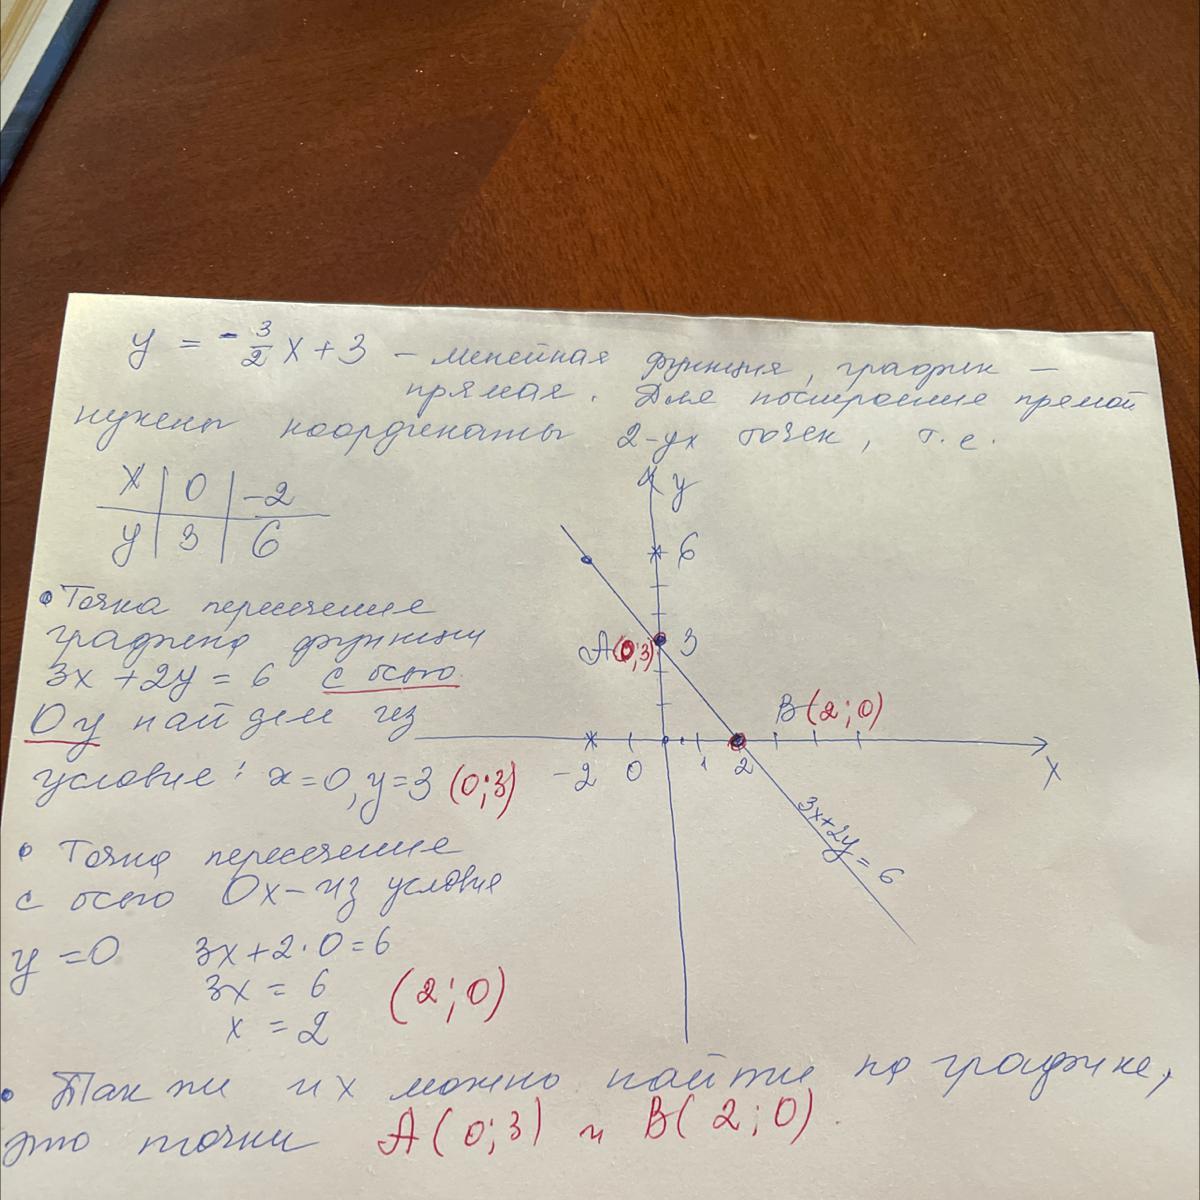 y = -3/2 x + 3 – линейная функция, график –
прямая. Для построения прямой
нужны координаты 2-ух точек, т.е.
x | 0 | -2
y | 3 | 6
• Точка пересечения
графика функции
3x + 2y = 6 с осью
Oy найдем из
условия: x=0, y=3 (0;3)
• Точка пересечения
с осью Ox – из условия
y = 0 3x + 2·0 = 6
3x = 6 (2;0)
x = 2
y
6
A(0;3) 3
B(2;0)
-2 0 1 2 x
3x+2y=6
• Так же их можно найти по графике,
это точки A(0;3) и B(2;0).